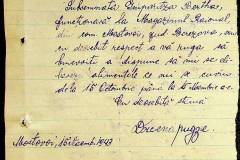 Subsemnata Gimpavitza Bertha,
funcționară la Magazinul Raional,
din com. Mostovoi, jud. Berezovca, am
cu deosebit respect a vă ruga să
binevoiți a dispune să mi se eli-
bereze alimentele ce mi se cuvin
dela 15 Octombrie până la 15 Noembrie a.c.
Cu deosebită stimă
Mostovoi, 15 1943